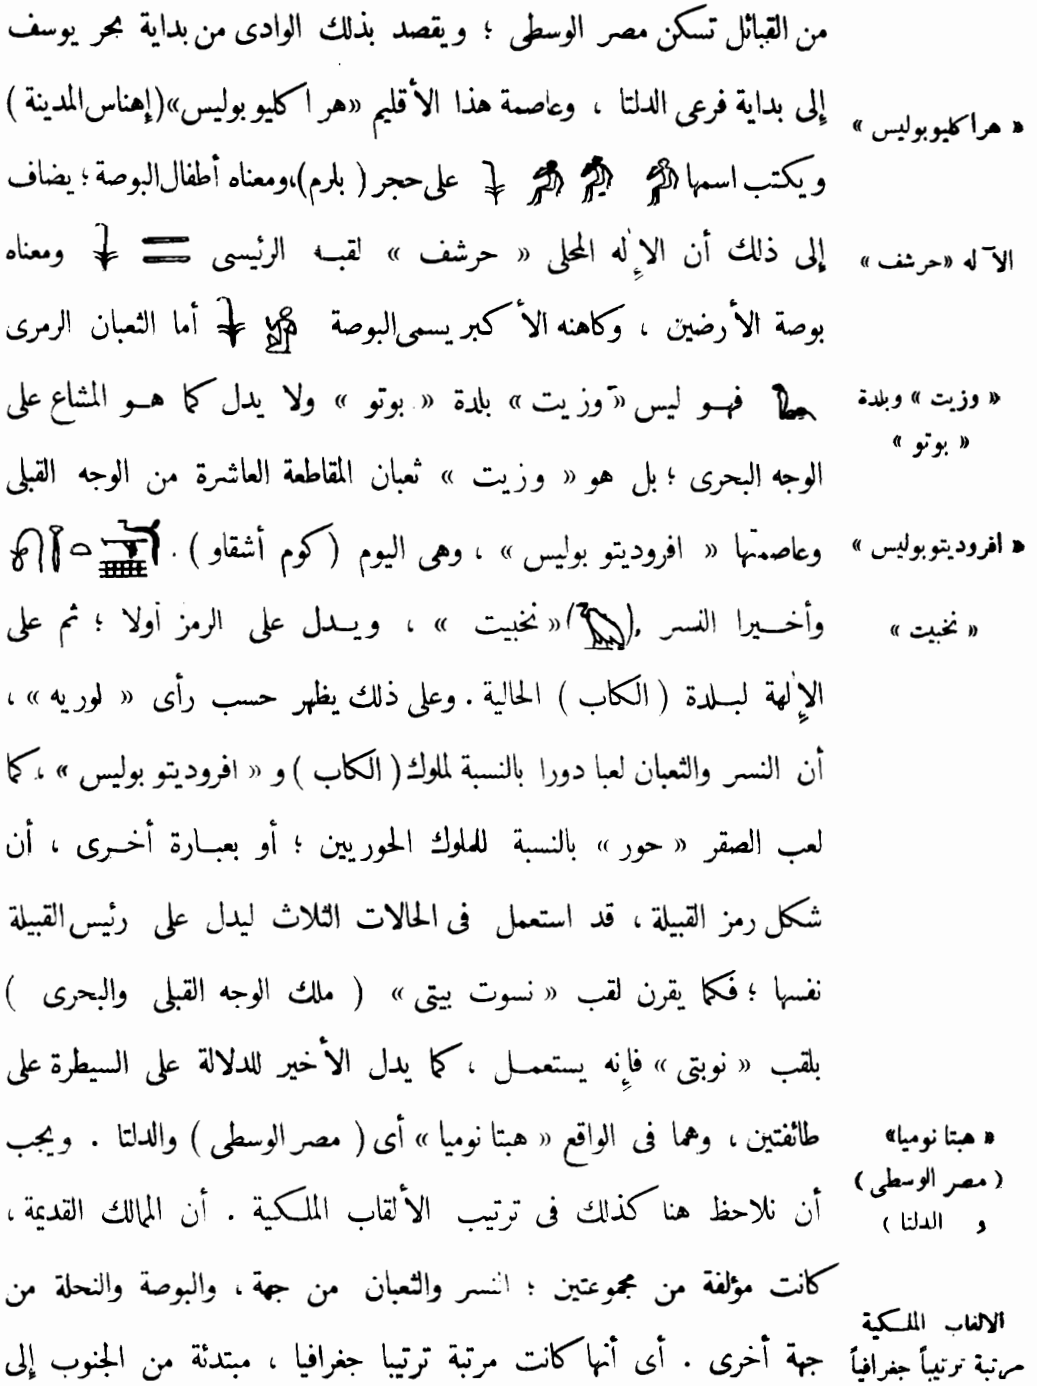 من القبائل تسكن مصر الوسطى ؛ ويقصد بذلك الوادى من بداية بحر يوسف
إلى بداية فرعى الدلتا ، وعاصمة هذا الأقليم «هراكليوبوليس»(إهناس المدينة )
« هراكليوبوليس »
ويكتب اسمها على حجر ( بلرم)،ومعناه أطفال البوصة ؛ يضاف
إلى ذلك أن الإله المحلى « حرشف » لقبه الرئيسى ومعناه
الآله «حرشف »
بوصة الأرضين ، وكاهنه الأكبر يسمى البوصة أما الثعبان الرمزى
فهو ليس «وزيت » بلدة « بوتو » ولا يدل كما هو المشاع على
« وزيت » وبلدة
« بوتو »
الوجه البحرى ؛ بل هو « وزيت » ثعبان المقاطعة العاشرة من الوجه القبلى
وعاصمتها « افروديتو بوليس » ، وهى اليوم ( كوم أشقاو ) .
« افروديتوبوليس »
وأخيرا النسر ( ) «نخبيت » ، ويدل على الرمز أولا ؛ ثم على
« نخبيت »
الإلهة لبلدة ( الكاب ) الحالية . وعلى ذلك يظهر حسب رأى « لوريه » ،
أن النسر والثعبان لعبا دورا بالنسبة لملوك ( الكاب ) و « افروديتو بوليس » ، كما
لعب الصقر « حور » بالنسبة للملوك الحوريين ؛ أو بعبارة أخرى ، أن
شكل رمز القبيلة ، قد استعمل فى الحالات الثلاث ليدل على رئيس القبيلة
نفسها ؛ فكما يقرن لقب « نسوت بيتى » ( ملك الوجه القبلى والبحرى )
بلقب « نوبتى » فإنه يستعمل ، كما يدل الأخير للدلالة على السيطرة على
طائفتين ، وهما فى الواقع « هبتا نوميا » أى ( مصر الوسطى ) والدلتا . ويجب
« هبتا نوميا»
( مصر الوسطى )
و الدلتا )
أن نلاحظ هنا كذلك فى ترتيب الألقاب الملكية . أن الممالك القديمة ،
كانت مؤلفة من مجموعتين ؛ النسر والثعبان من جهة ، والبوصة والنحلة من
جهة أخرى . أى أنها كانت مرتبة ترتيبا جغرافيا ، مبتدئة من الجنوب إلى
الالقاب الملكية
مرتبة ترتيباً جغرافياً